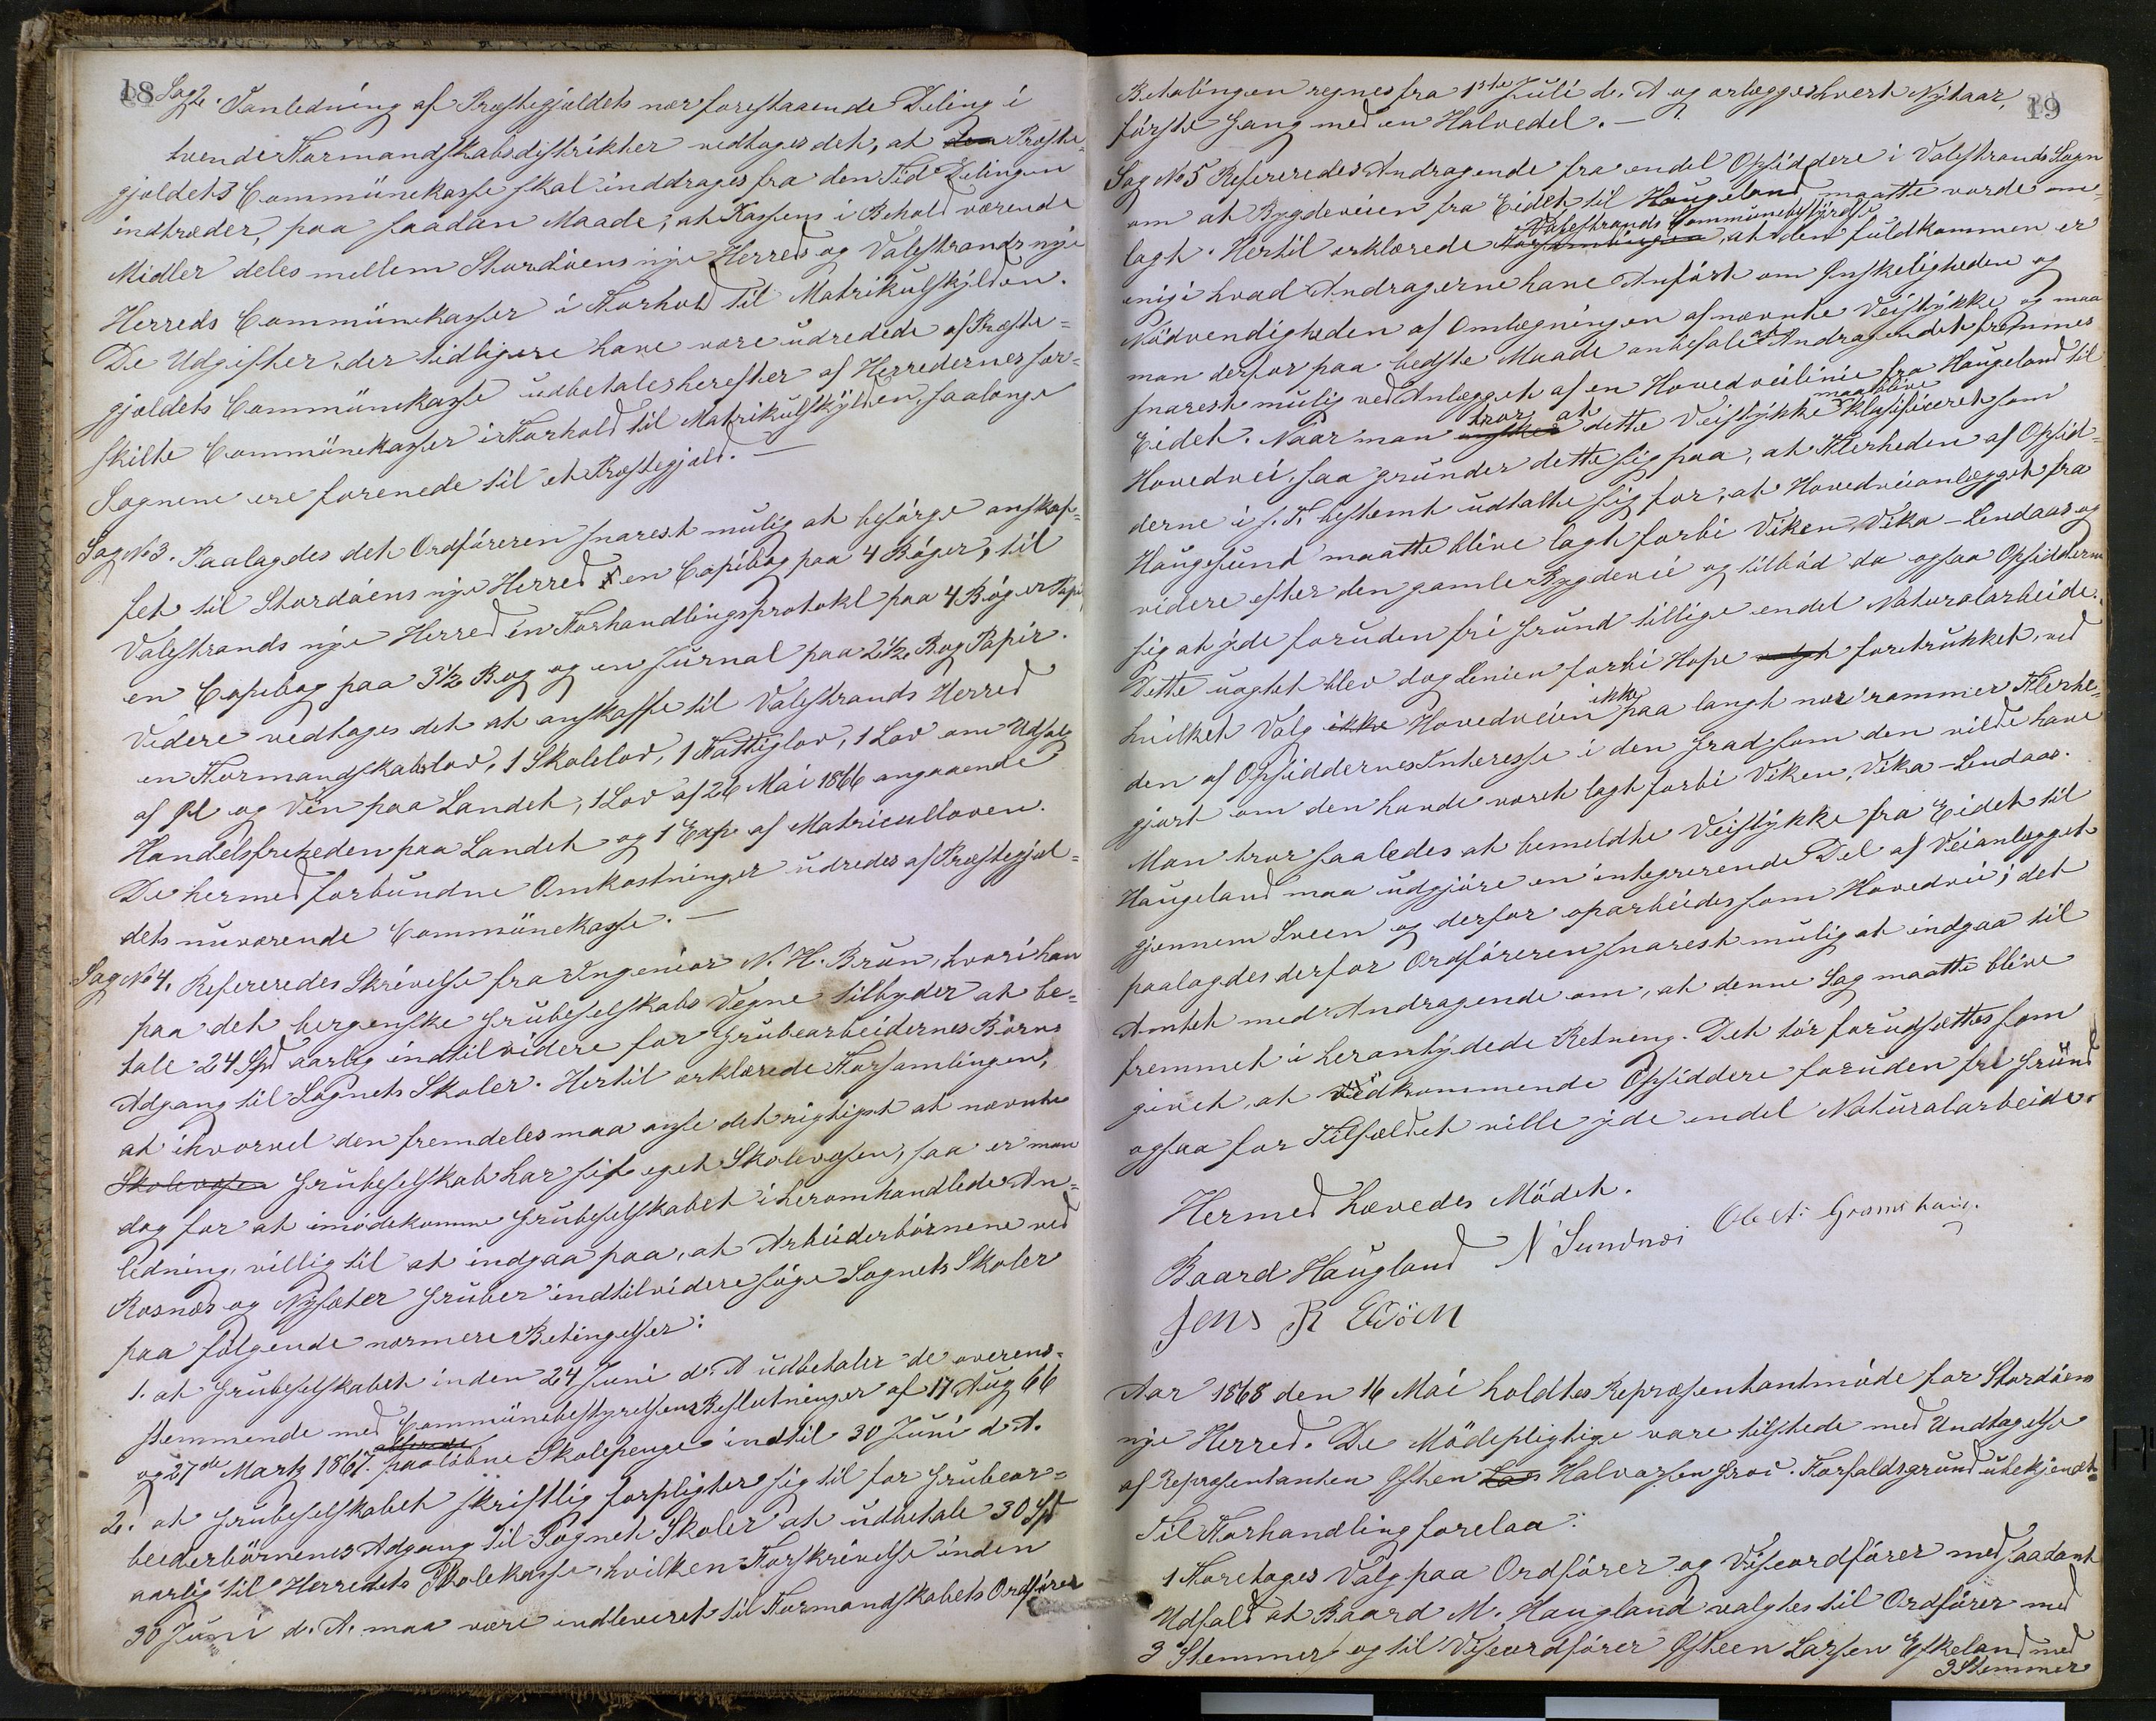 18
Sag 2. I anledning af Præstegjeldets nær forestaaende Deling i
tvende Formandskabsdistrikter vedtoges det, at den Præste-
gjeldets Communekasse skal inddrages fra den Tid Delingen
indtræder, paa saadan Maade, at Kassens i Behold værende
Midler deles mellem Stordöens nye Herred og Valestrands nye
Herreds Communekasser i Forhold til Matrikulskylden.
De Udgifter, der tidligere have være udredede af Præste-
gjeldets Communekasse udbetales herefter af Herredernes for-
skilte Communekasser i Forhold til Matrikulskylden, saalænge
Sognene ere forenede til et Præstegjeld. —
Sag No 3. Paalagdes det Ordföreren snarest mulig at besörge anskaf-
fet til Stordöens nye Herred en Copibog paa 4 Böger, til
Valestrands nye Herred en Forhandlingsprotokl paa 4 Böger Papir
en Copibog paa 3 1/2 Bog og en Jurnal paa 2 1/2 Bog Papir.
Videre vedtoges det at anskaffe til Valestrands Herred
en Formandskabslov, 1 Skolelov, 1 Fattiglov, 1 Lov om Udsalg
af Øl og Vin paa Landet, 1 Lov af 26 Mai 1866 angaaende
Handelsfriheden paa Landet og 1 Exp. af Matriculloven.
De hermed forbundne Omkostninger udredes af Præstegjel-
dets nuværende Communekasse. —
Sag No 4. Refereredes Skrivelse fra Ingeniør N. H. Brun, hvori han
paa det bergenske Grubeselskabs Vegne tilbyder at be-
tale 24 Spd aarlig indtilvidere for Grubearbeidernes Börns
Adgang til Sognets Skoler. Hertil erklærede Forsamlingen,
at ihvorvel den fremdeles maa anse det rigtigst at nævnte
Skolevæsen Grubeselskab har sit eget Skolevæsen, saa er man
dog for at imödekomme Grubeselskabet i heromhandlede An-
ledning, villig til at indgaa paa, at Arbeiderbörnene ved
Rosnæs og Nysæter Gruber indtilvidere söge Sognets Skoler
paa fölgende nærmere Betingelser:
1. at Grubeselskabet inden 24 Juni d. A udbetaler de overens-
stemmende med Communebestyrelsens Beslutninger af 17 Aug 66
og 27de Marts 1867. paalöbne Skolepenge indtil 30 Juni d. A.
2. at Grubeselskabet skriftlig forpligter sig til for Grubear-
beiderbörnenes Adgang til Sognets Skoler at udbetale 30 Spd
aarlig til Herredets Skolekasse, hvilken Forskrivelse inden
30 Juni d. A. maa være indleveret til Formandskabets Ordförer
19
Betalingen regnes fra 1ste Juli d. A og erlægges hvert Nytaar,
förste Gang med en Halvedel. —
Sag No 5 Refereredes Andragende fra endel Opsiddere i Valestrands Sogn
om at Bygdeveien fra Eidet til Haugeland maatte vorde om-
Valestrands Communebestyrelse
lagt. Hertil erklærede Forsamlingen, at den fuldkommen er
enig i hvad Andragerne have Anfört om Ønskeligheden og
Nödvendigheden af Omlægningen af nævnte Veistykke og maa
man derfor paa bedste Maade anbefale at Andragendet fremmes
snarest mulig ved Anlægget af en Hovedveilinie fra Haugeland til
tror at maa blive
Eidet. Naar man ønsker dette Veistykke klasificeret som
Hovedvei, saa grunder dette sig paa, at Flerheden af Opsid-
derne i s. T. bestemt udtalte sig for, at Hovedveianlægget fra
Haugesund maatte blive lagt forbi Viken, Vika – Lendaas og
videre efter den gamle Bygdevei og tilböd da ogsaa Opsidderne
sig at yde foruden fri Grund tillige endel Naturalarbeide.
Dette uagtet blev dog Linien forbi Hope valgt foretrukket, ved
ikke
hvilket Valg ikke Hovedveien paa langt nær rammer Flerhe-
den af Opsiddernes Interesse i den Grad som den vilde have
gjort om den havde været lagt forbi Viken, Vika – Lendaas.
Man tror saaledes at bemeldte Veistykke fra Eidet til
Haugeland maa udgjöre en integrerende Del af Veianlægget
gjennem Sveen og derfor oparbeides som Hovedvei; det
paalagdes derfor Ordföreren snarest mulig at indgaa til
Amtet med Andragende om, at denne Sag maatte blive
fremmet i herantydede Retning. Det tör forudsættes som
givet, at vedkommende Opsiddere foruden fri Grund
ogsaa for Tilfældet ville yde endel Naturalarbeide.
Hermed hævedes Mödet.
Baard Haugland N Sundnæi Ole A. Gramshaug.
Jens R Eidöen
Aar 1868 den 16 Mai holdtes Repræsentantmöde for Stordöens
nye Herred. De Mödepligtige vare tilstede med Undtagelse
af Repræsentanten Østen Lars Halvorsen Grov. Forfaldsgrund ubekjendt.
Til Forhandling forelaa:
1 Foretoges Valg paa Ordförer og Viseordförer med saadant
Udfald at Baard M. Haugland valgtes til Ordförer med
3 Stemmer og til Viseordförer Østeen Larsen Eskeland med
3 Stemmer